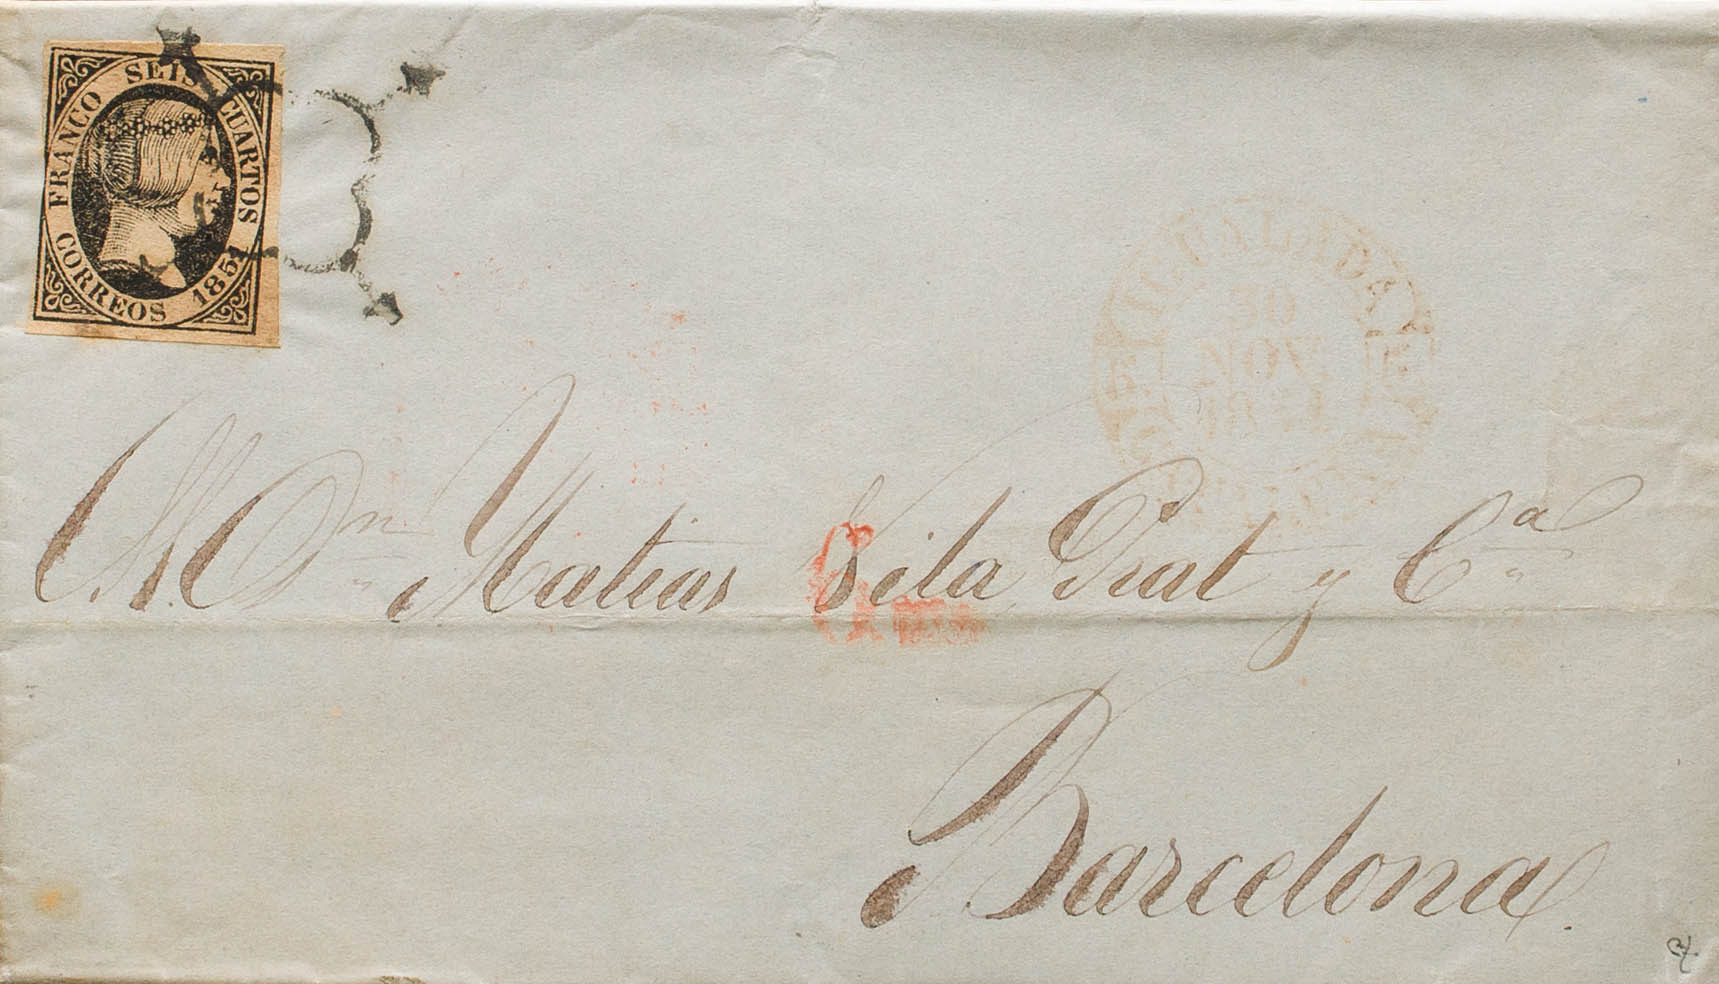 FRANCO SEIS CUARTOS
CORREOS 1851
IGUALADA
30
NOV
1851
Dn Matias Vila Prat y Cª
Barcelona